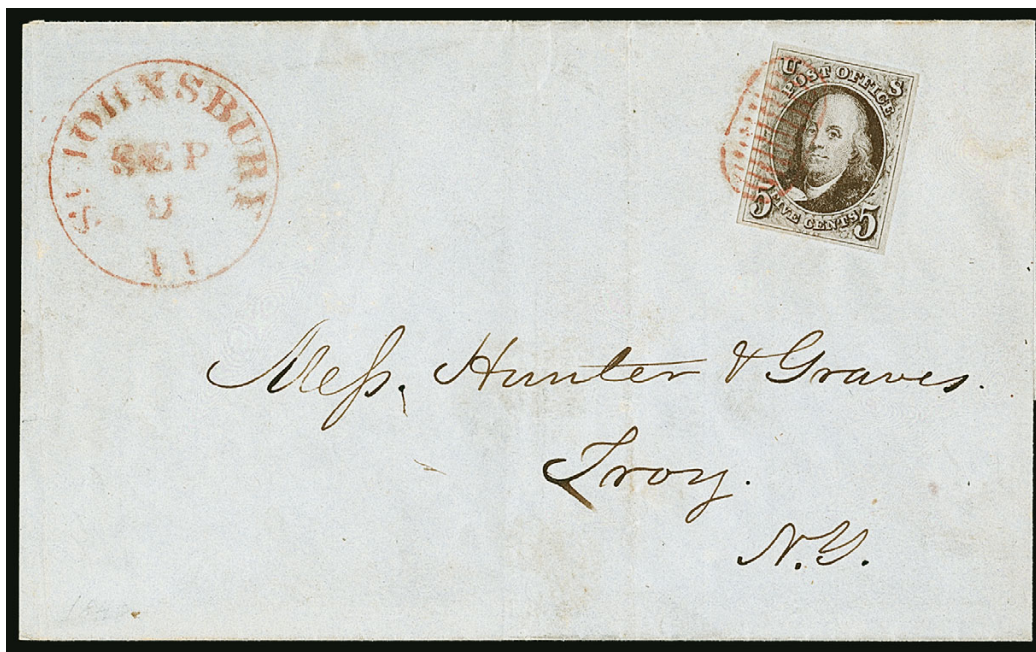 ST. JOHNSBURY
SEP
9
U S
POST OFFICE
5 FIVE CENTS 5
Meſs. Hunter & Graves.
Troy.
N.Y.